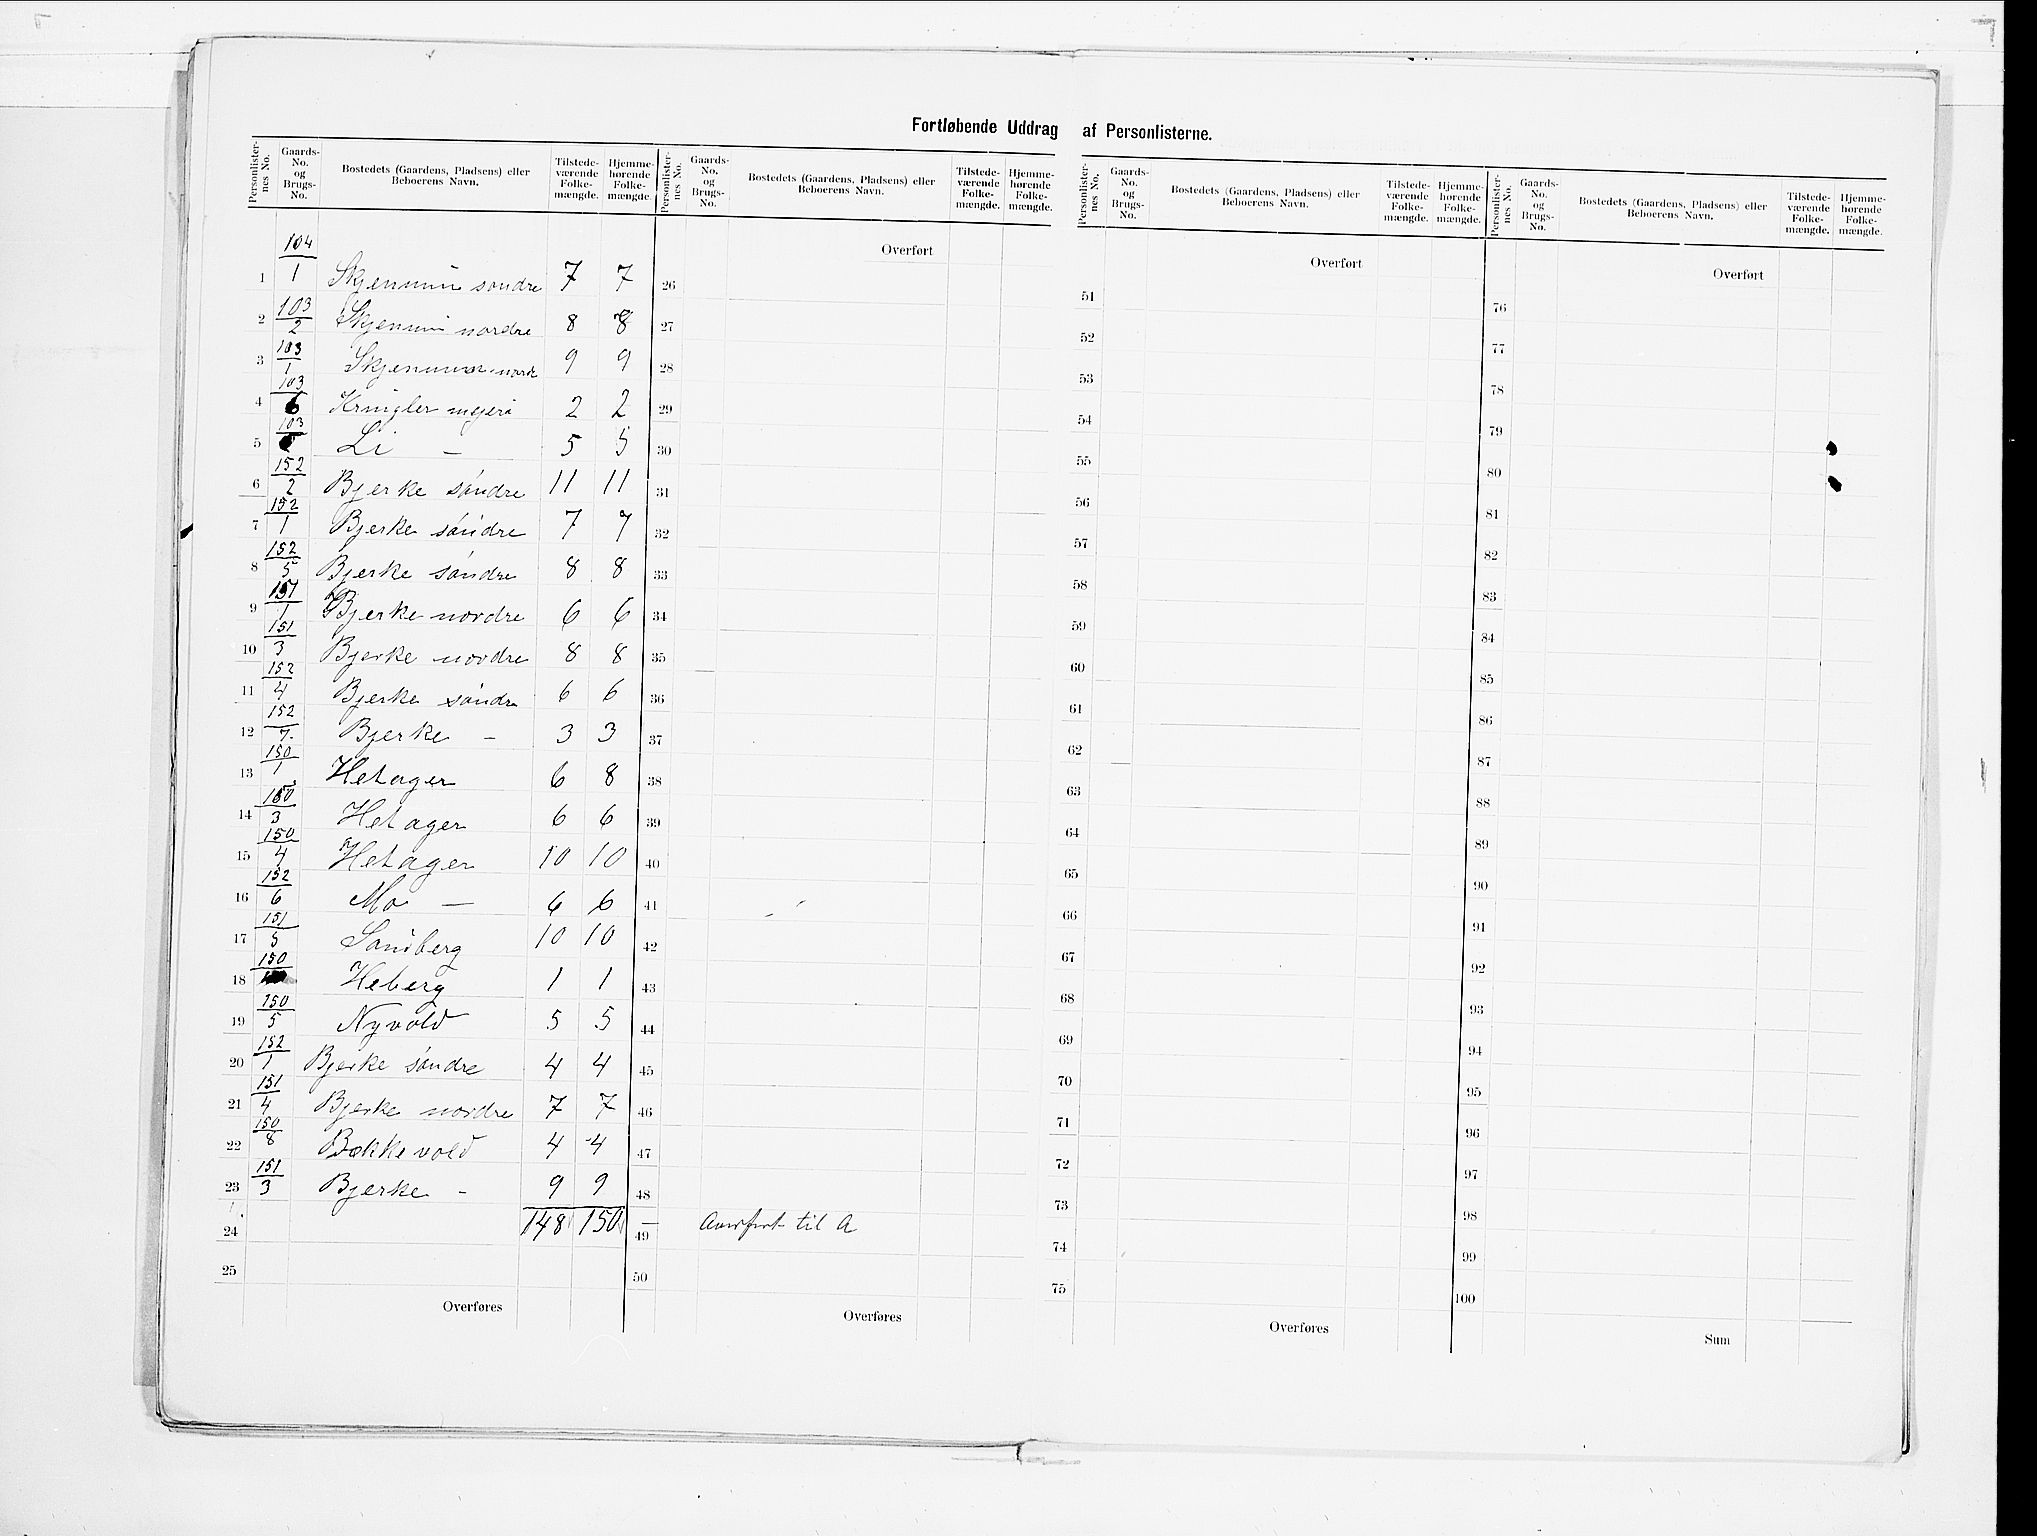 Fortløbende Uddrag af Personlisterne.
Personlister-nes No. Gaards-No. og Brugs-No. Bostedets (Gaardens, Pladsens) eller Beboerens Navn. Tilstede-værende Folke-mængde. Hjemme-hørende Folke-mængde.
1 104/1 Skjennum søndre 7 7
2 103/2 Skjennum nordre 8 8
3 103/1 Skjennum nordr 9 9
4 103/6 Kringler mejeri 2 2
5 103/ Li — 5 5
6 152/2 Bjerke søndre 11 11
7 152/1 Bjerke søndre 7 7
8 152/5 Bjerke søndre 8 8
9 151/1 Bjerke nordre 6 6
10 151/3 Bjerke nordre 8 8
11 152/4 Bjerke søndre 6 6
12 152/7. Bjerke – 3 3
13 150/1 Hetager 6 8
14 150/3 Hetager 6 6
15 150/4 Hetager 10 10
16 152/6 Mo — 6 6
17 151/5 Sandberg 10 10
18 150/ Heberg 1 1
19 150/5 Nyvold 5 5
20 152/1 Bjerke søndre 4 4
21 151/4 Bjerke nordre 7 7
22 150/8 Bækkevold 4 4
23 151/3 Bjerke – 9 9
24 148 150
25
Overføres
Personlister-nes No. Gaards-No. og Brugs-No. Bostedets (Gaardens, Pladsens) eller Beboerens Navn. Tilstede-værende Folke-mængde. Hjemme-hørende Folke-mængde.
Overført
26
27
28
29
30
31
32
33
34
35
36
37
38
39
40
41
42
43
44
45
46
47
48
49 — Overført til A
50
Overføres
Personlister-nes No. Gaards-No. og Brugs-No. Bostedets (Gaardens, Pladsens) eller Beboerens Navn. Tilstede-værende Folke-mængde. Hjemme-hørende Folke-mængde.
Overført
51
52
53
54
55
56
57
58
59
60
61
62
63
64
65
66
67
68
69
70
71
72
73
74
75
Overføres
Personlister-nes No. Gaards-No. og Brugs-No. Bostedets (Gaardens, Pladsens) eller Beboerens Navn. Tilstede-værende Folke-mængde. Hjemme-hørende Folke-mængde.
Overført
76
77
78
79
80
81
82
83
84
85
86
87
88
89
90
91
92
93
94
95
96
97
98
99
100
Sum